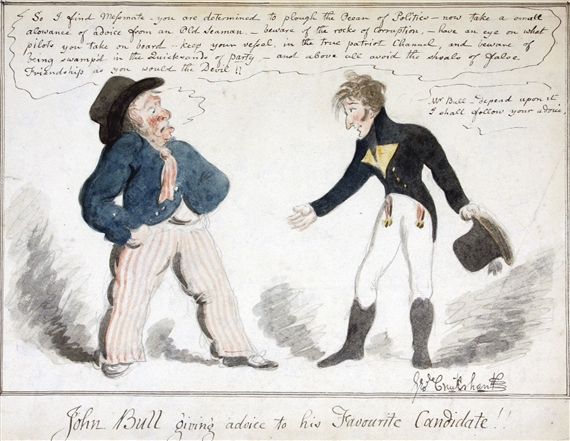 So I find Messmate - you are determined to plough the Ocean of Politics - now take a small
alowance of advice from an Old Seaman - beware of the rocks of Corruption, - have an eye on what
pilots you take on board - keep your vessel, in the True patriot Channel, and beware of
being swamp'd in the Quicksands of party - and above all avoid the shoals of false
Friendship as you would the Devil !!
Mr Bull - depend upon it
I shall follow your advice.
Cruikshank
John Bull giving advice to his Favourite Candidate!!